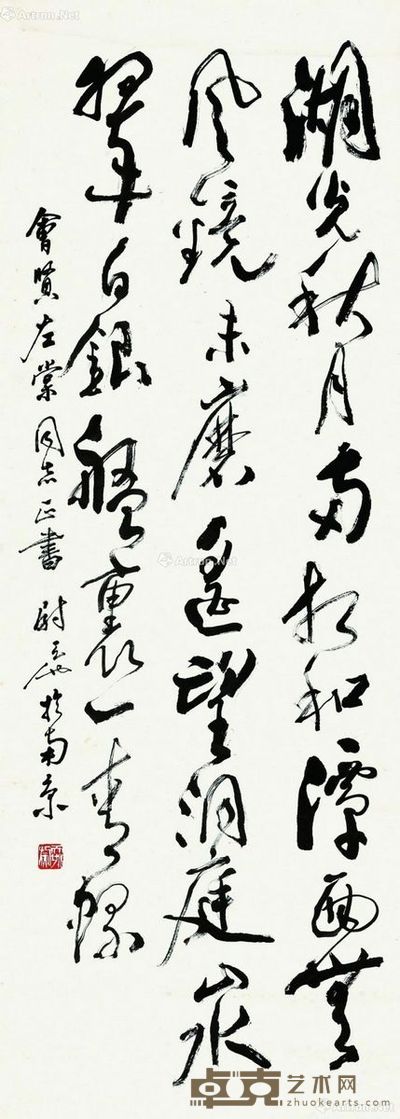 湖光秋月兩相和潭面無
風鏡未磨遙望洞庭山水
翠白銀盤裏一青螺
會賢左棠同志正書 尉天池於南京
Artron.Net
Artron.Net
卓克艺术网
zhuokearts.com